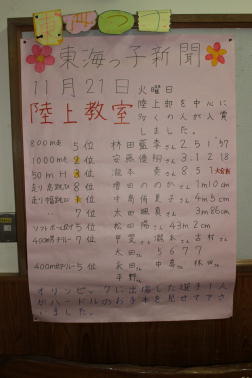 東海っ子新聞
11月21日 火曜日
陸上教室
陸上部を中心に
多くの人が入賞
しました。
800m走 5位 林田 さん 2 51 57
1000m走 2位 安藤優翔さん 3 12 18
50mH 3位 龍本 さん 8 51 大会新
走り高跳び 8位 増田ののかさん 1m10cm
走り幅跳び 1位 さん 4m 5cm
〃 7位 太田颯真さん 3m86cm
ソフトボール投げ 5位 松田陽さん 43m2cm
400mリレー 7位 甲斐さん 瀧本さん 吉村さん
太田さん 5677
400mリレー 5位 永田さん 中島さん 林田さん
平野さん
オリンピックに出場した選手1人
がハードルのお手本を見せて下さ
いました。